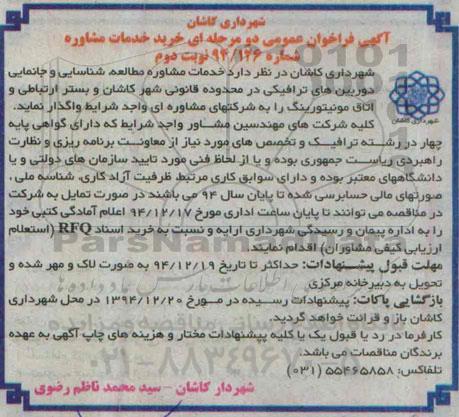 شهرداری کاشان
آگهی فراخوان عمومی دو مرحله ای خرید خدمات مشاوره
شماره ۹۴/۱۲۶ نوبت دوم
شهرداری کاشان در نظر دارد خدمات مشاوره مطالعه، شناسایی و جانمایی
دوربین های ترافیکی در محدوده قانونی شهر کاشان و بستر ارتباطی و
اتاق مونیتورینگ را به شرکتهای مشاوره ای واجد شرایط واگذار نماید.
شهرداری کاشان
کلیه شرکت های مهندسین مشاور واجد شرایط که دارای گواهی پایه
چهار در رشته ترافیک و تخصص های مورد نیاز از معاونت برنامه ریزی و نظارت
راهبردی ریاست جمهوری بوده و یا از لحاظ فنی مورد تایید سازمان های دولتی و یا
دانشگاههای معتبر بوده و دارای سوابق کاری مرتبط، ظرفیت آزاد کاری، شناسه ملی ،
صورتهای مالی حسابرسی شده تا پایان سال ۹۴ می باشند در صورت تمایل به شرکت
در مناقصه می توانند تا پایان ساعت اداری مورخ ۹۴/۱۲/۱۷ اعلام آمادگی کتبی خود
را به اداره پیمان و رسیدگی شهرداری ارایه و نسبت به خرید اسناد RFQ (استعلام
ارزیابی کیفی مشاوران) اقدام نمایند.
مهلت قبول پیشنهادات: حداکثر تا تاریخ ۹۴/۱۲/۱۹ به صورت لاک و مهر شده و
تحویل به دبیرخانه مرکزی
بازگشایی پاکات: پیشنهادات رسیده در مورخ ۱۳۹۴/۱۲/۲۰ در محل شهرداری
کاشان باز و قرائت خواهد گردید.
کارفرما در رد یا قبول یک یا کلیه پیشنهادات مختار و هزینه های چاپ آگهی به عهده
برندگان مناقصات می باشد.
تلفاکس: ۵۵۴۶۵۸۵۸ (۰۳۱)
شهردار کاشان – سید محمد ناظم رضوی
ParsNamad
۰۲۱-۸۸۳۴۹۶۷